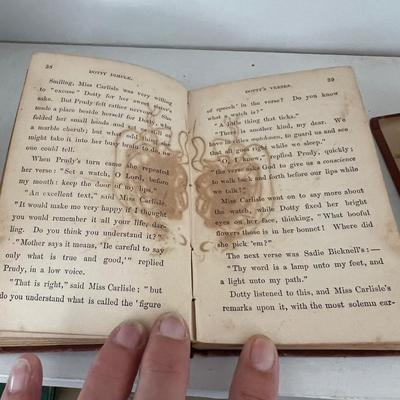 38
DOTTY DIMPLE.
Smiling, Miss Carlisle was very willing
to "excuse" Dotty for her sweet sister's
sake. But Prudy felt rather nervous. She
made a place beside herself for Dotty, who
folded her small hands and sat as still as
a marble cherub; but what odd thing she
might take into her busy brain to do, no
one could tell.
When Prudy's turn came she repeated
her verse: "Set a watch, O Lord, before
my mouth: keep the door of my lips."
"An excellent text," said Miss Carlisle.
"It would make me very happy if I thought
you would remember it all your life, dar-
ling. Do you think you understand it?"
"Mother says it means, 'Be careful to say
only what is true and good,'" replied
Prudy, in a low voice.
"That is right," said Miss Carlisle; "but
do you understand what is called the 'figure
DOTTY'S VERSES.
39
of speech' in the verse? Do you know
what a watch is?"
"A little thing that ticks."
"There is another kind, my dear. We
have in cities watchmen, to guard us and see
that all goes right while we sleep."
"O, I know," replied Prudy, quickly;
"the verse asks God to give us a conscience
to walk back and forth before our lips while
we talk!"
Miss Carlisle went on to say more about
the watch, while Dotty fixed her bright
eyes on her face, thinking, "What booful
flowers those is in her bonnet! Where did
she pick 'em?"
The next verse was Sadie Bicknell's:—
"Thy word is a lamp unto my feet, and
a light unto my path."
Dotty listened to this, and Miss Carlisle's
remarks upon it, with the most solemn ear-